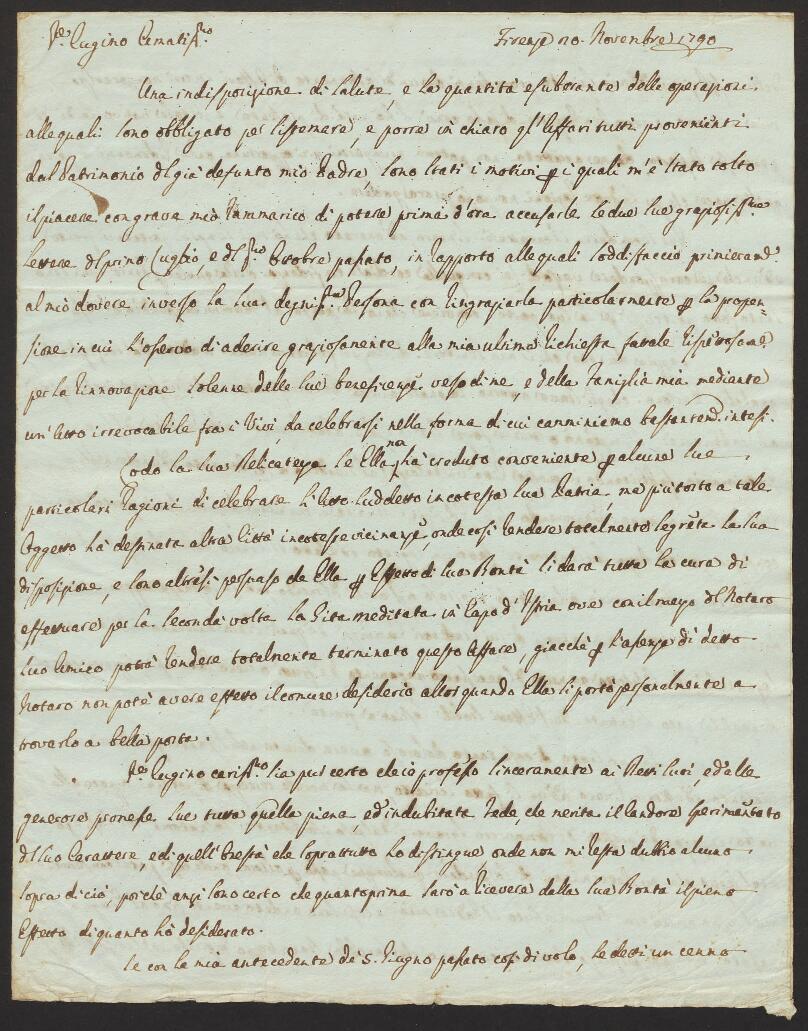 Sig.r Cugino Amatiss.mo Firenze 20. Novembre 1790
Una indisposizione di Salute, e la quantità esuberante delle operazioni
alle quali sono obbligato per sistemare, e porre in chiaro gl'Affari tutti provenienti
dal Patrimonio del già defunto mio Padre, sono stati i motivi p i quali m'è stato tolto
il piacere con grave mio rammarico di potere prima d'ora accusarle le due sue graziosiss.me
lettere del primo Luglio, e del p.mo Ottobre passato, in rapporto alle quali soddisfaccio primieram.e
al mio dovere inverso la sua degniss.ma Persona con ringraziarla particolarmente p la propen=
sione in cui l'osservo di aderire graziosamente alla mia ultima richiesta fattale rispettosam.e
per la rinnovazione solenne delle sue beneficenze verso di me, e della Famiglia mia mediante
un'Atto irrevocabile fra i Vivi, da celebrarsi nella forma di cui camminiamo bastantem.e intesi.
Lodo la sua Delicatezza se Ella non ha creduto conveniente p alcune sue
particolari ragioni di celebrare l'Atto suddetto in cotesta sua Patria, ma piuttosto a tale
Oggetto ha destinata altra Città in coteste vicinanze, onde così rendere totalmente segreta la sua
disposizione, e sono altresì persuaso che Ella p Effetto di sua Bontà si darà tutta la cura di
effettuare per la seconda volta la Gita meditata in Capo d'Istria ove con il mezzo del Notaro
suo Amico potrà rendere totalmente terminato questo Affare, giacchè p l'assenza di detto
Notaro non potè avere effetto il comune desiderio allor quando Ella si portò personalmente a
trovarlo a bella posta.
Sig.r Cugino cariss.mo sia pur certo che io professo sinceramente ai Detti suoi, ed alle
generose promesse sue tutta quella piena, ed indubitata Fede, che merita il Candore sperimentato
del suo Carattere, e di quell'Onestà che soprattutto lo distingue, onde non mi resta dubbio alcuno
sopra di ciò, poichè anzi sono certo che quanto prima sarò a ricevere dalla sua Bontà il pieno
Effetto di quanto hò desiderato.
Se con la mia antecedente de' 5. Giugno passato così di volo, le detti un cenno